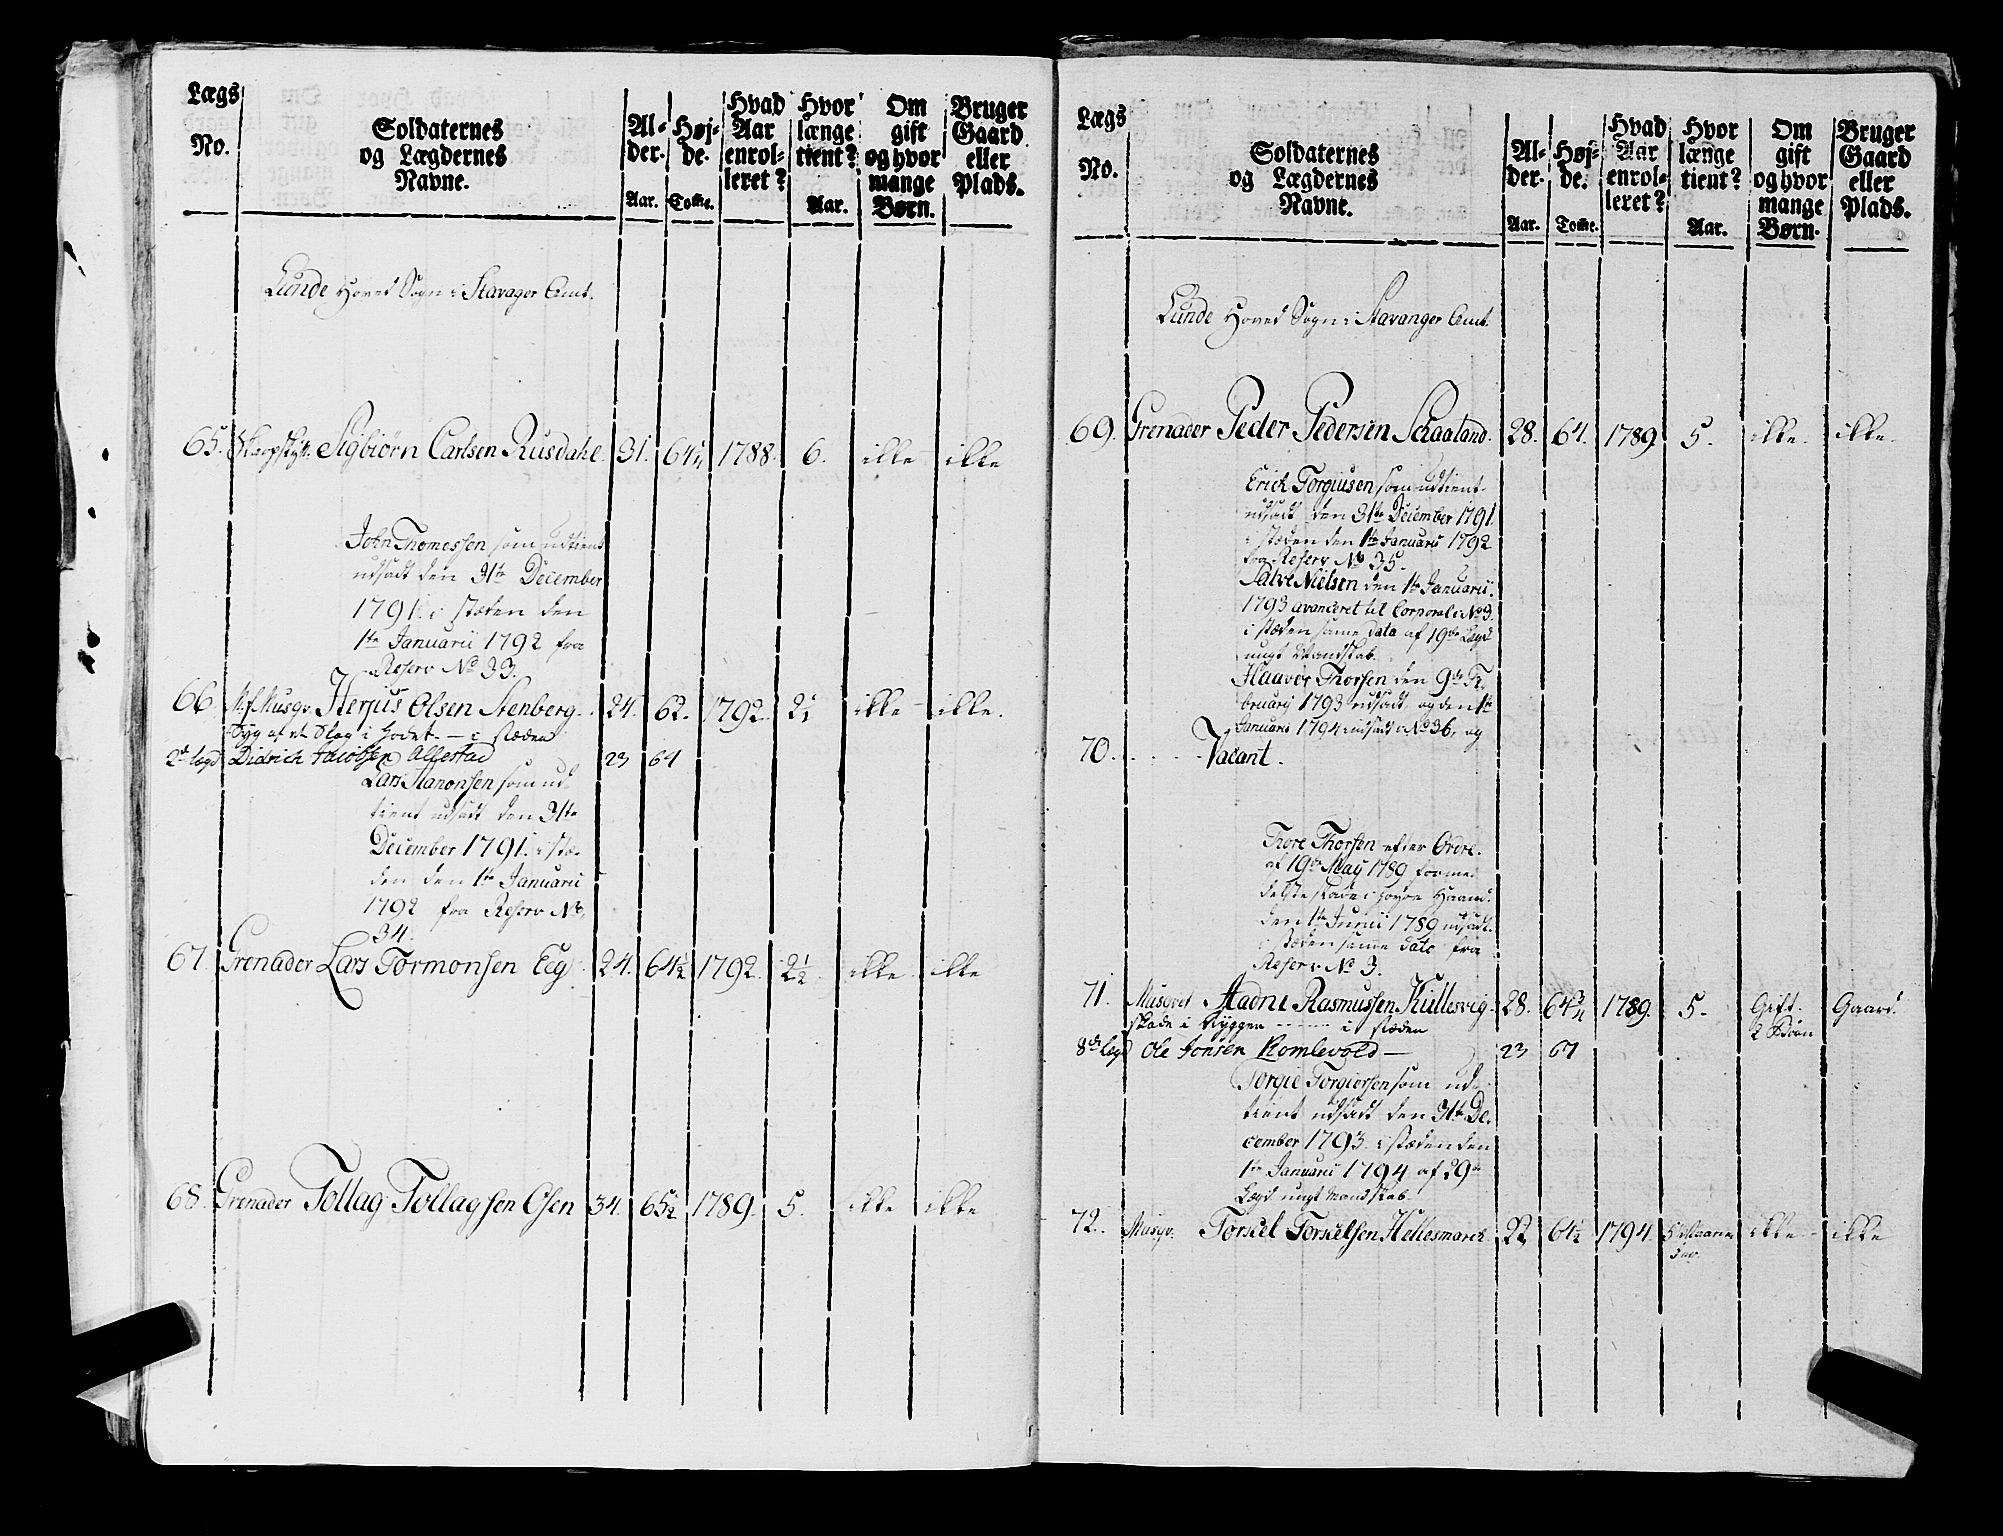 Lægs No.
Soldaternes og Lægdernes Navne.
Al-der. Aar.
Høj-de. Tome.
Hvad Aar enrol-leret?
Hvor længe tient? Aar.
Om gift og hvor mange Børn.
Bruger Gaard eller Plads.
Lunde Hoved Sogn i Stavager Amt.
65. Skarpskytt. Sigbiørn Carlsen Rusdahl. 31. 64¼ 1788. 6. ikke ikke
John Thomessen som udtient
udsadt den 31te December
1791. i stæden den
1te Januarii 1792 fra
Reserv No 33.
66 N.f. Musqv. Herjus Olsen Stenberg. 24. 62. 1792. 2½ ikke ikke.
Syg af et Slag i Hodet. — i stæden
2de lægd Didrich Jacobsen Allestad 23 64
Lars Aanonsen som ud-
tient udsadt den 31te
December 1791. i stæ-
den den 1te Januarii
1792 fra Reserv No
34.
67. Grenader Lars Tormonsen Eeg 24. 64½ 1792. 2½ ikke ikke
68. Grenader Tollag Tollagsen Osen 34. 65½ 1789. 5. ikke ikke
Lægs No.
Soldaternes og Lægdernes Navne.
Al-der. Aar.
Høj-de. Tome.
Hvad Aar enrol-leret?
Hvor længe tient? Aar.
Om gift og hvor mange Børn.
Bruger Gaard eller Plads.
Lunde Hoved Sogn i Stavanger Amt.
69. Grenader Peder Pedersen Schaaland. 28. 64. 1789. 5. ikke. ikke.
Erich Torgiusen som udtient
udsadt den 31te December 1791.
i stæden den 1te Januarii 1792
fra Reserv No 35.
Salve Nielsen den 1te Januarii
1793 avanceret til Corporal i No 3.
i stæden same dato af 19de Lægd
ungt Mandskab.
Haavor Thorsen den 9de Fe-
bruarij 1793 udsadt og den 1te
Januarii 1794 indsadt i No 36, og
70. Vacant.
Trore Thorsen efter Ordre.
af 19de May 1789 forme-
delst skade i høyre Haand
den 1te Junii 1789 udsadt.
i stæden same dato fra
Reserv No 3.
71. Musqvet Aadne Rasmussen Kullesvig 28. 64¾ 1789. 5. Gift. 2 Børn Gaard.
skade i Ryggen ---- i stæden
8de lægd Ole Jonsen Romlevold — 23 67
Torgie Torgiersen som ud-
tient udsadt den 31te De-
cember 1793. i stæden den
1te Januarii 1794 af 29de
Lægd ungt Mandskab.
72. Musqv. Torkel Torkelsen Hellesmarck 22 64½ 1794. ikke ikke